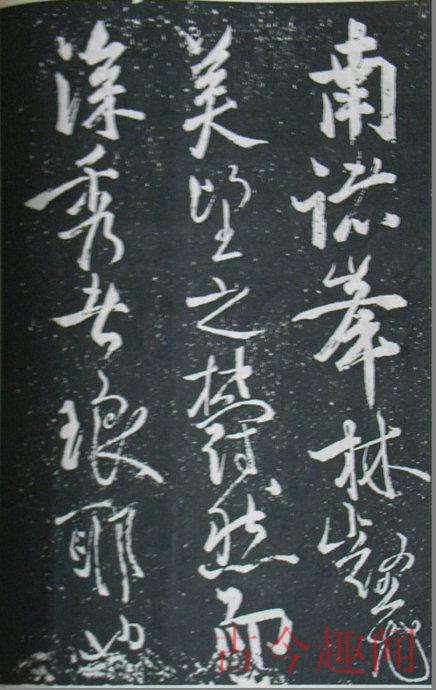 南諸峯林壑尤
美望之蔚然而
深秀者琅耶也
古今趣闻